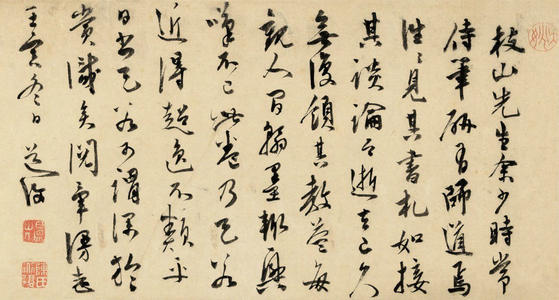 枝山先生余少時常
侍筆硯有師道焉
往往見其書札如接
其談論今逝去已久
無復領其教益每
人間翰墨輒興
嘆不已此卷乃
近得超逸不類平
日書可謂深於
賞識矣閱畢漫志
壬寅冬日道復